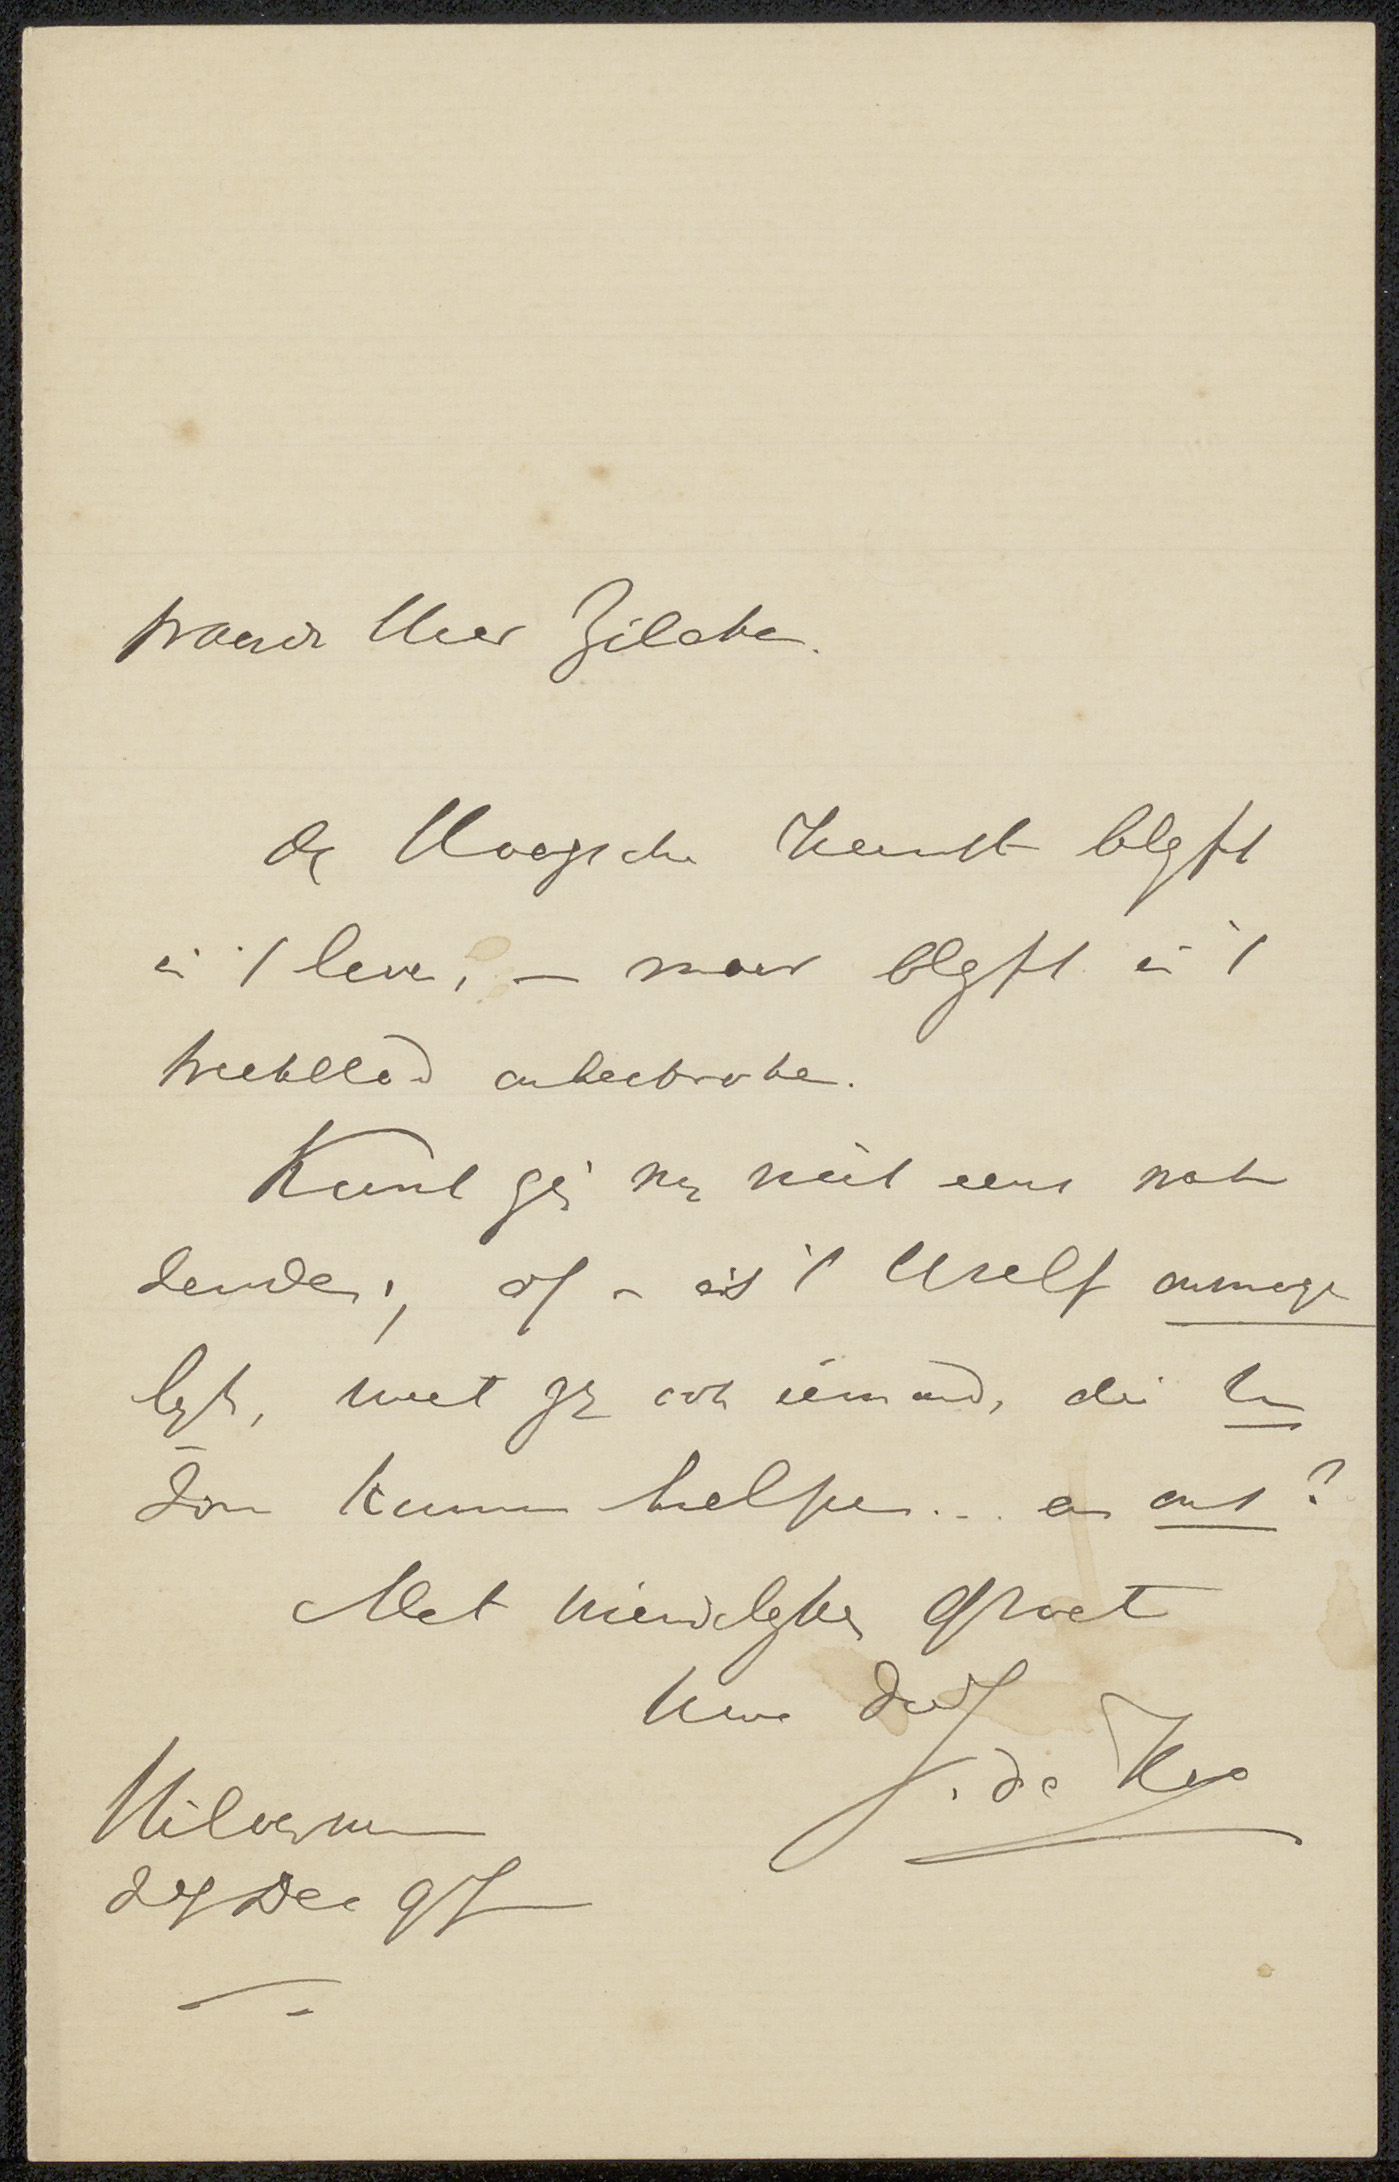 Waarde Heer Zilcken.
De Haagsche Kunst blijft
in 't leven, — maar blijft in 't
weekblad onbesproken.
Kunt gij mij niet eens wat
zenden, of — is 't Uzelf onmoge
lijk, weet gij ook iemand, die U
zou kunnen helpen... en ons?
Met vriendelijken groet
Uwe
J. de Koo
Hilversum
Dec 97